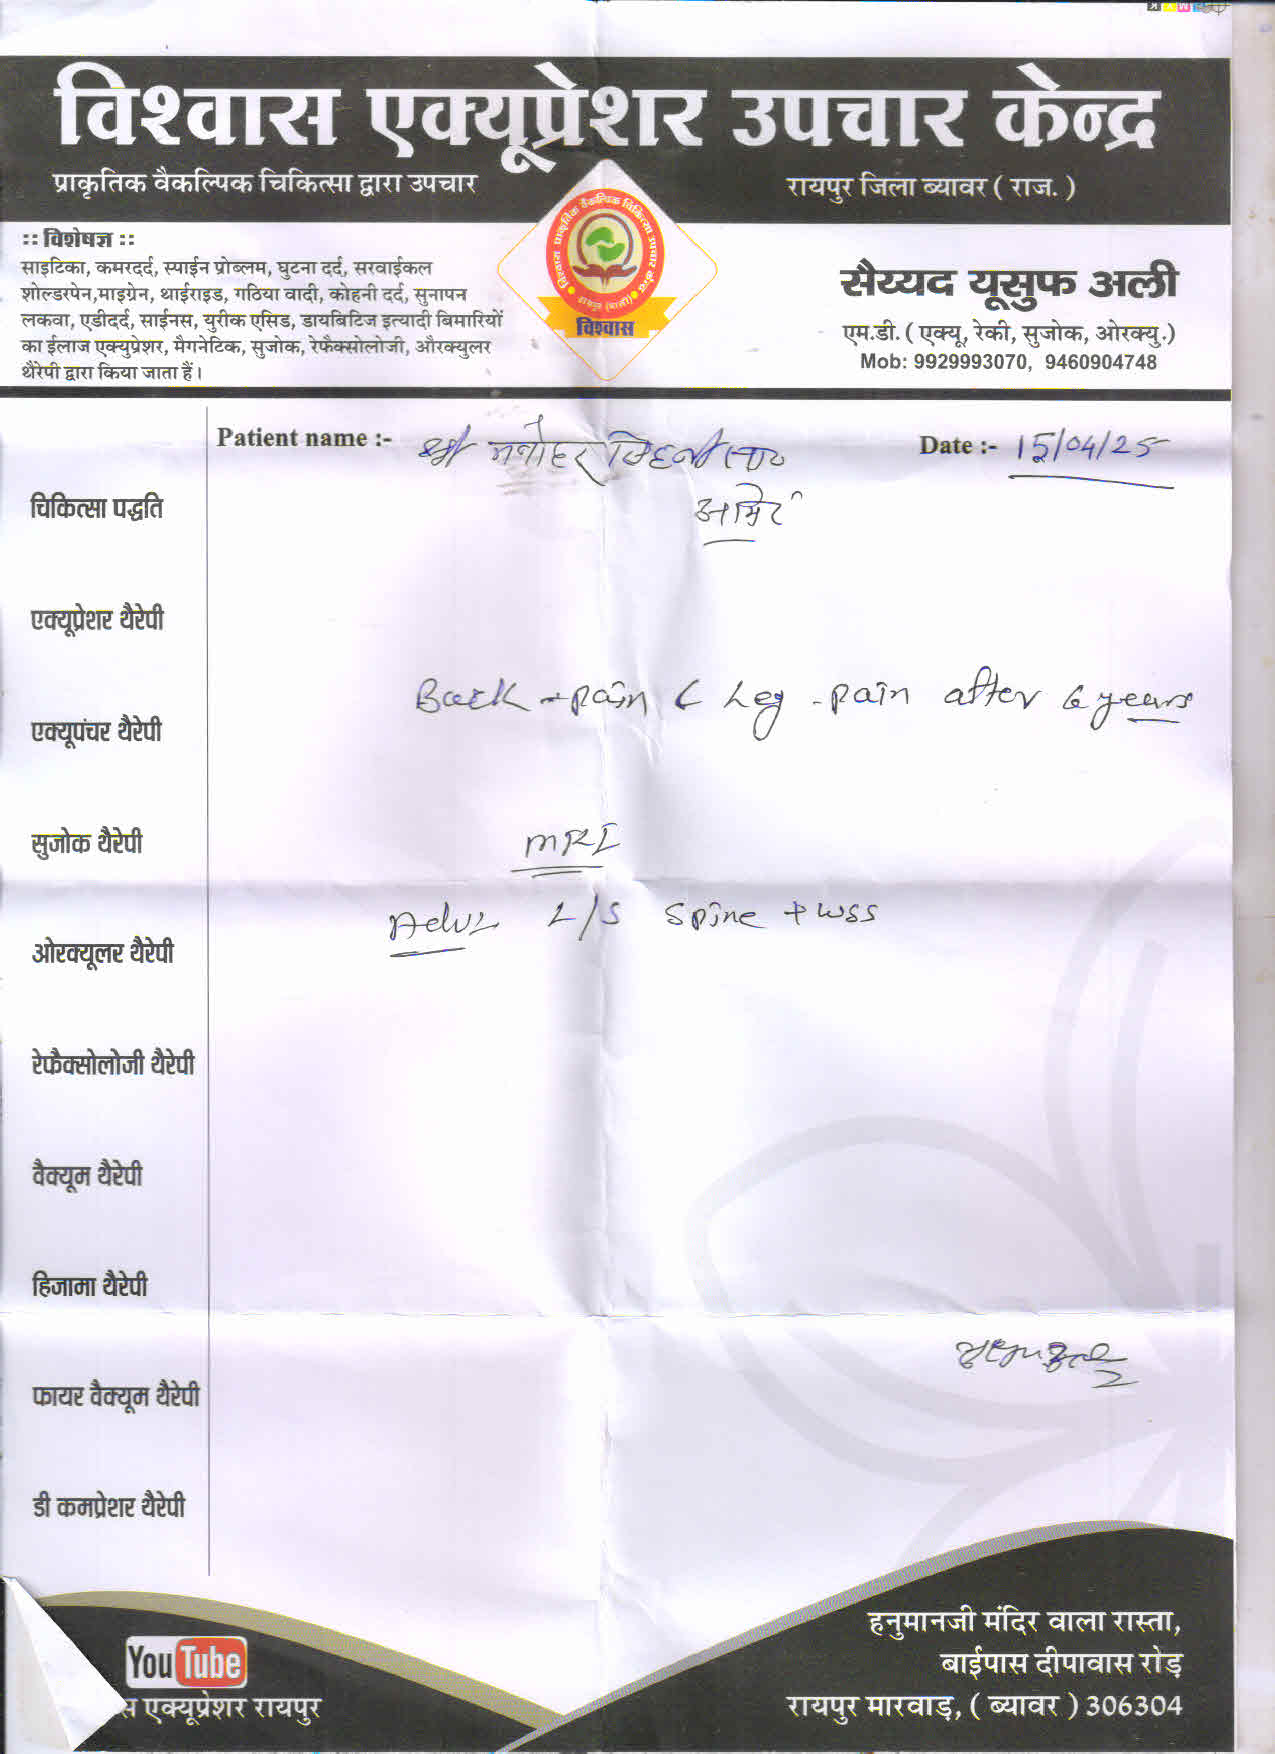 विश्वास एक्यूप्रेशर उपचार केन्द्र
प्राकृतिक वैकल्पिक चिकित्सा द्वारा उपचार
रायपुर जिला ब्यावर ( राज. )
:: विशेषज्ञ ::
साइटिका, कमरदर्द, स्पाईन प्रोब्लम, घुटना दर्द, सरवाईकल
शोल्डरपेन,माइग्रेन, थाईराइड, गठिया वादी, कोहनी दर्द, सुनापन
लकवा, एडीदर्द, साईनस, युरीक एसिड, डायबिटिज इत्यादी बिमारियों
का ईलाज एक्युप्रेशर, मैगनेटिक, सुजोक, रेफैक्सोलोजी, औरक्युलर
थैरेपी द्वारा किया जाता हैं।
विश्वास
सैय्यद यूसुफ अली
एम.डी. ( एक्यू, रेकी, सुजोक, ओरक्यु.)
Mob: 9929993070, 9460904748
Patient name :- श्री मनोहर
Date :- 15/04/25
चिकित्सा पद्धति
एक्यूप्रेशर थैरेपी
Back - pain & Leg - pain after 6 years
एक्यूपंचर थैरेपी
सुजोक थैरेपी
MRI
Adv L/S Spine + wss
ओरक्यूलर थैरेपी
रेफैक्सोलोजी थैरेपी
वैक्यूम थैरेपी
हिजामा थैरेपी
फायर वैक्यूम थैरेपी
डी कमप्रेशर थैरेपी
YouTube
स एक्यूप्रेशर रायपुर
हनुमानजी मंदिर वाला रास्ता,
बाईपास दीपावास रोड़
रायपुर मारवाड़, ( ब्यावर ) 306304